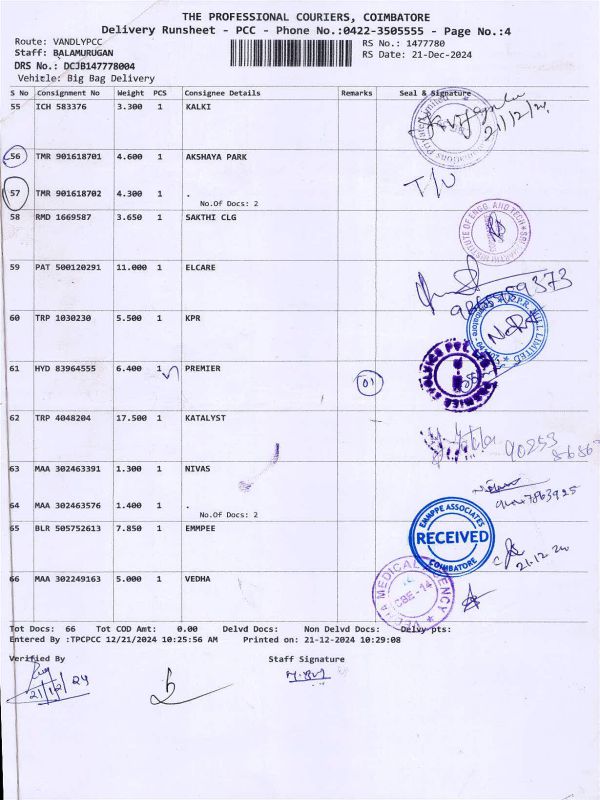 THE PROFESSIONAL COURIERS, COIMBATORE
Delivery Runsheet - PCC - Phone No.:0422-3505555 - Page No.:4
Route: VANDLYPCC RS No.: 1477780
Staff: BALAMURUGAN RS Date: 21-Dec-2024
DRS No.: DCJB147778004
Vehicle: Big Bag Delivery
S No Consignment No Weight PCS Consignee Details Remarks Seal & Signature
55 ICH 583376 3.300 1 KALKI
21/12/24
56 TMR 901618701 4.600 1 AKSHAYA PARK
T/U
57 TMR 901618702 4.300 1 .
No.Of Docs: 2
58 RMD 1669587 3.650 1 SAKTHI CLG
59 PAT 500120291 11.000 1 ELCARE
60 TRP 1030230 5.500 1 KPR
61 HYD 83964555 6.400 1 PREMIER 01
62 TRP 4048204 17.500 1 KATALYST
63 MAA 302463391 1.300 1 NIVAS
64 MAA 302463576 1.400 1 .
No.Of Docs: 2
65 BLR 505752613 7.850 1 EMMPEE
EMMPPE ASSOCIATES
RECEIVED
COIMBATORE
21.12.24
66 MAA 302249163 5.000 1 VEDHA
CBE-14
Tot Docs: 66 Tot COD Amt: 0.00 Delvd Docs: Non Delvd Docs: Delvy pts:
Entered By :TPCPCC 12/21/2024 10:25:56 AM Printed on: 21-12-2024 10:29:08
Verified By Staff Signature
21/12/24